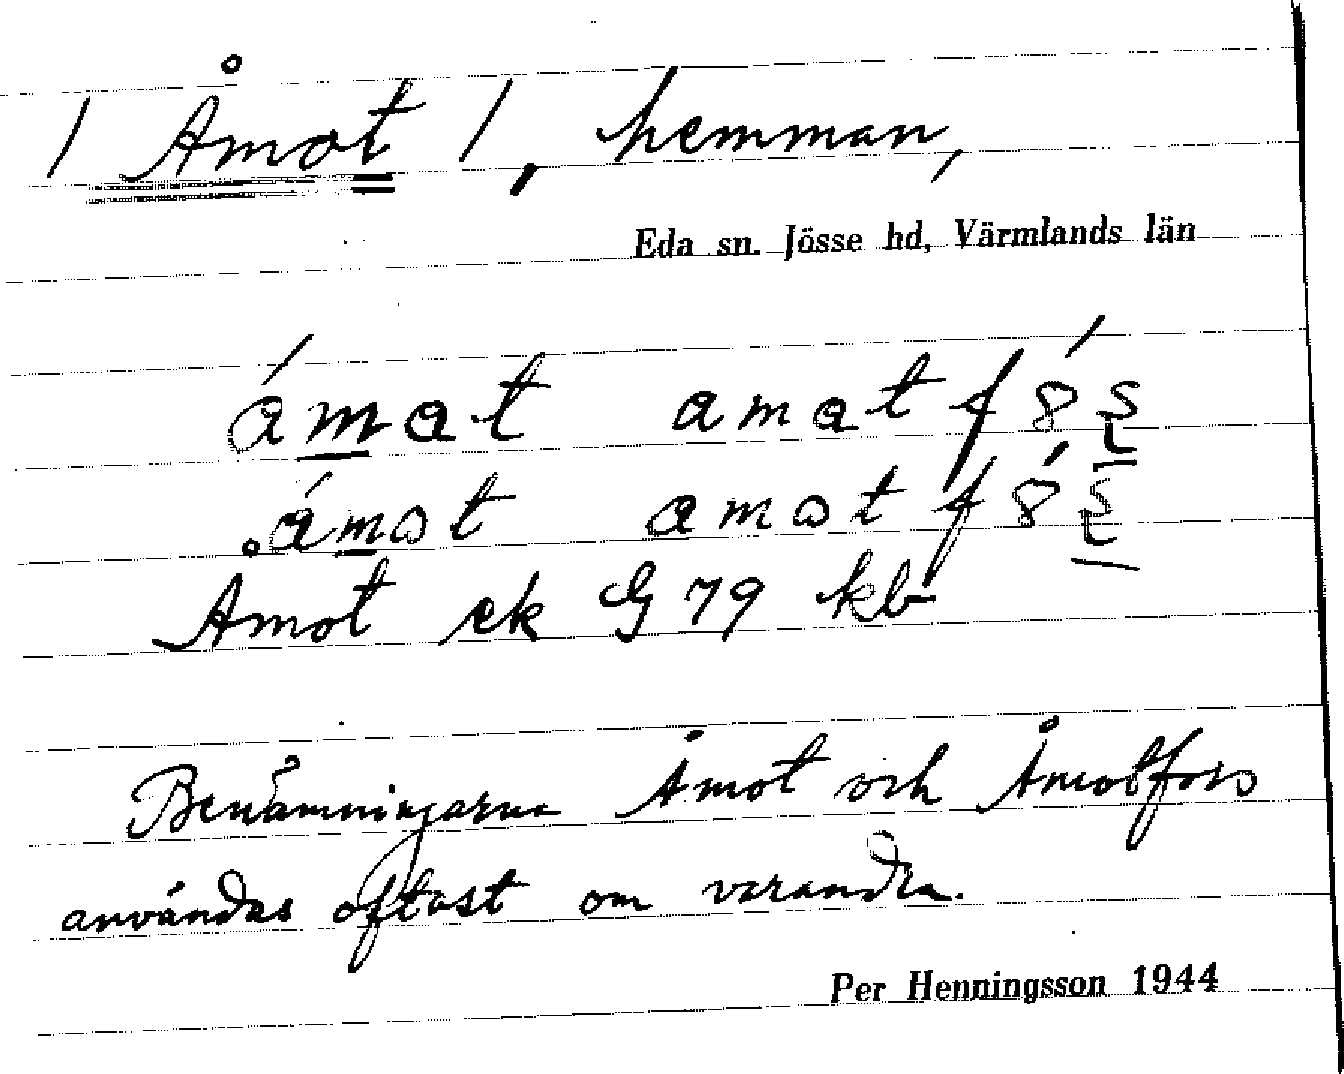 / Åmot /, hemman,
Eda sn. Jösse hd, Värmlands län
ámat amat f
ámot amot f
Åmot ek G 79 kb
Benämningarna Åmot och Åmotfors
användas oftast om varandra.
Per Henningsson 1944